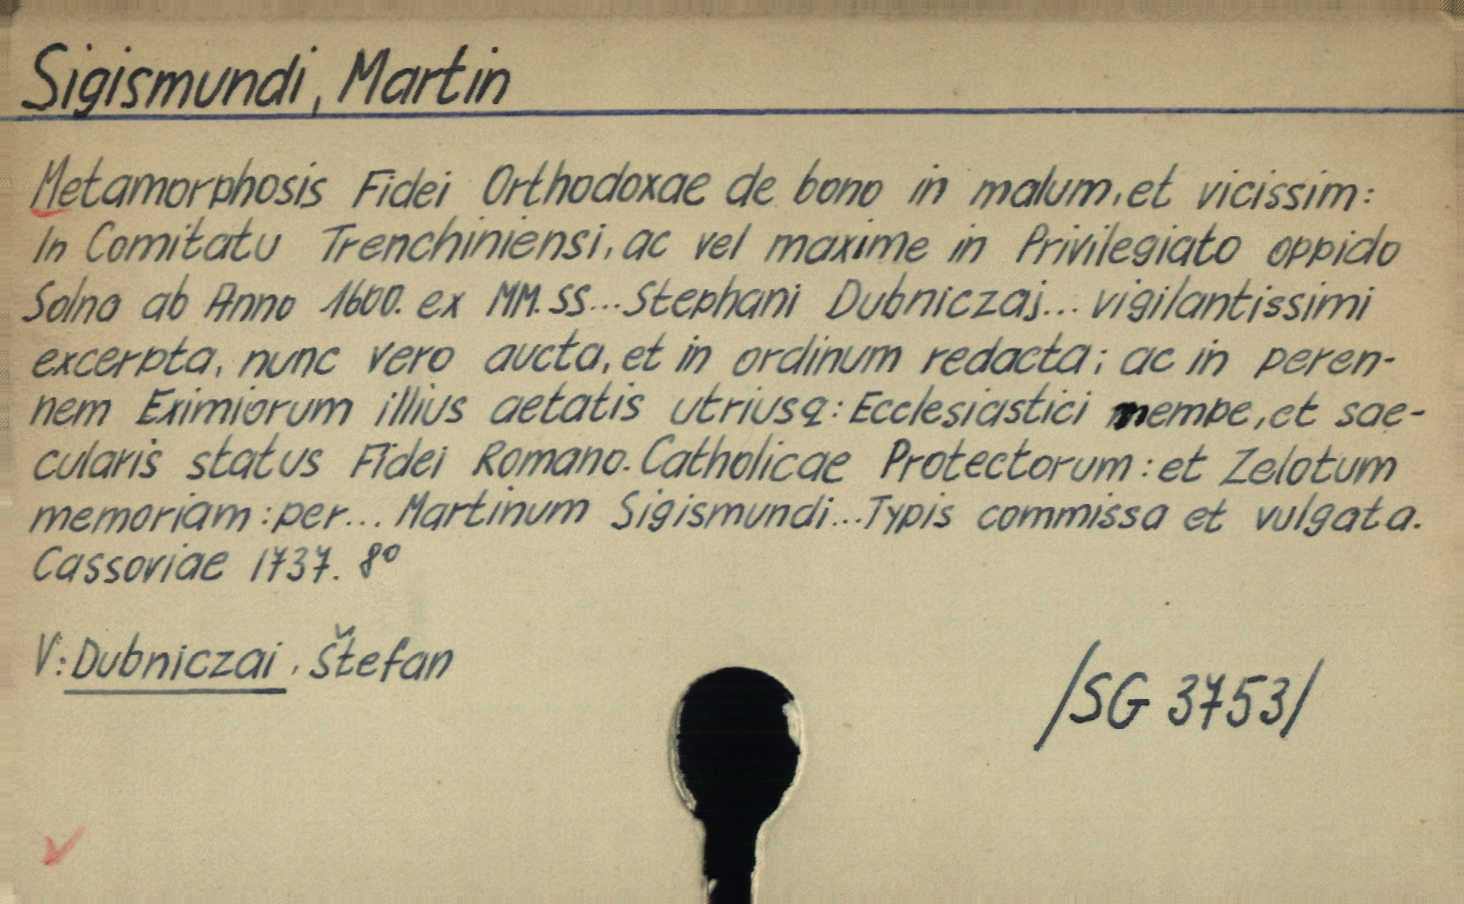 Sigismundi, Martin
Metamorphosis Fidei Orthodoxae de bono in malum, et vicissim:
In Comitatu Trenchiniensi, ac vel maxime in Privilegiato oppido
Solna ab Anno 1600. ex MM. SS... Stephani Dubniczaj... vigilantissimi
excerpta, nunc vero aucta, et in ordinum redacta; ac in peren-
nem Eximiorum illius aetatis utriusq: Ecclesiastici nempe, et sae-
cularis status Fidei Romano. Catholicae Protectorum: et Zelotum
memoriam: per... Martinum Sigismundi... Typis commissa et vulgata.
Cassoviae 1737. 8°
V: Dubniczai, Štefan
/SG 3753/